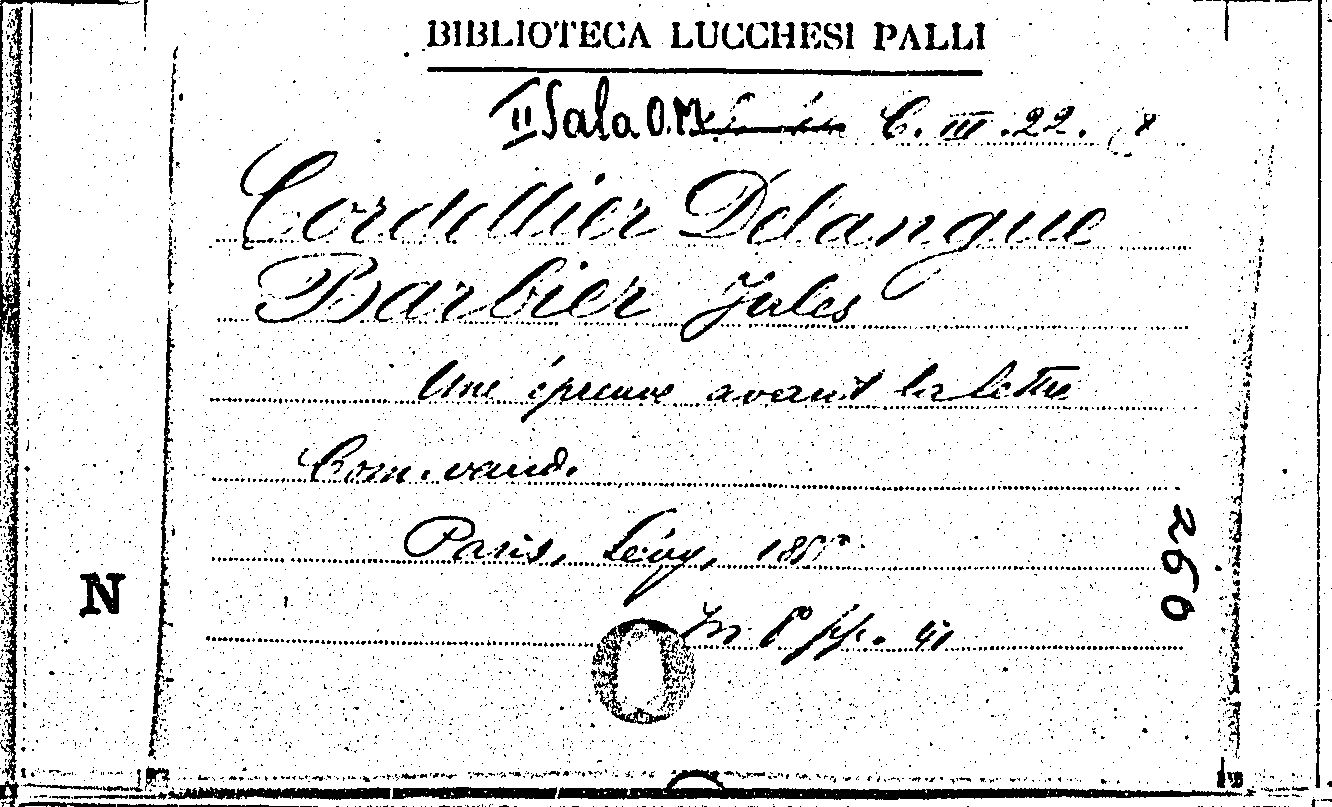 BIBLIOTECA LUCCHESI PALLI
II Sala O.M. C. III. 22. (8
Cordellier Delangue
Barbier Jules
Une épreuve avant la lettre
Com. vaud.
Paris, Lévy,
In 8° pp. 41
260
N